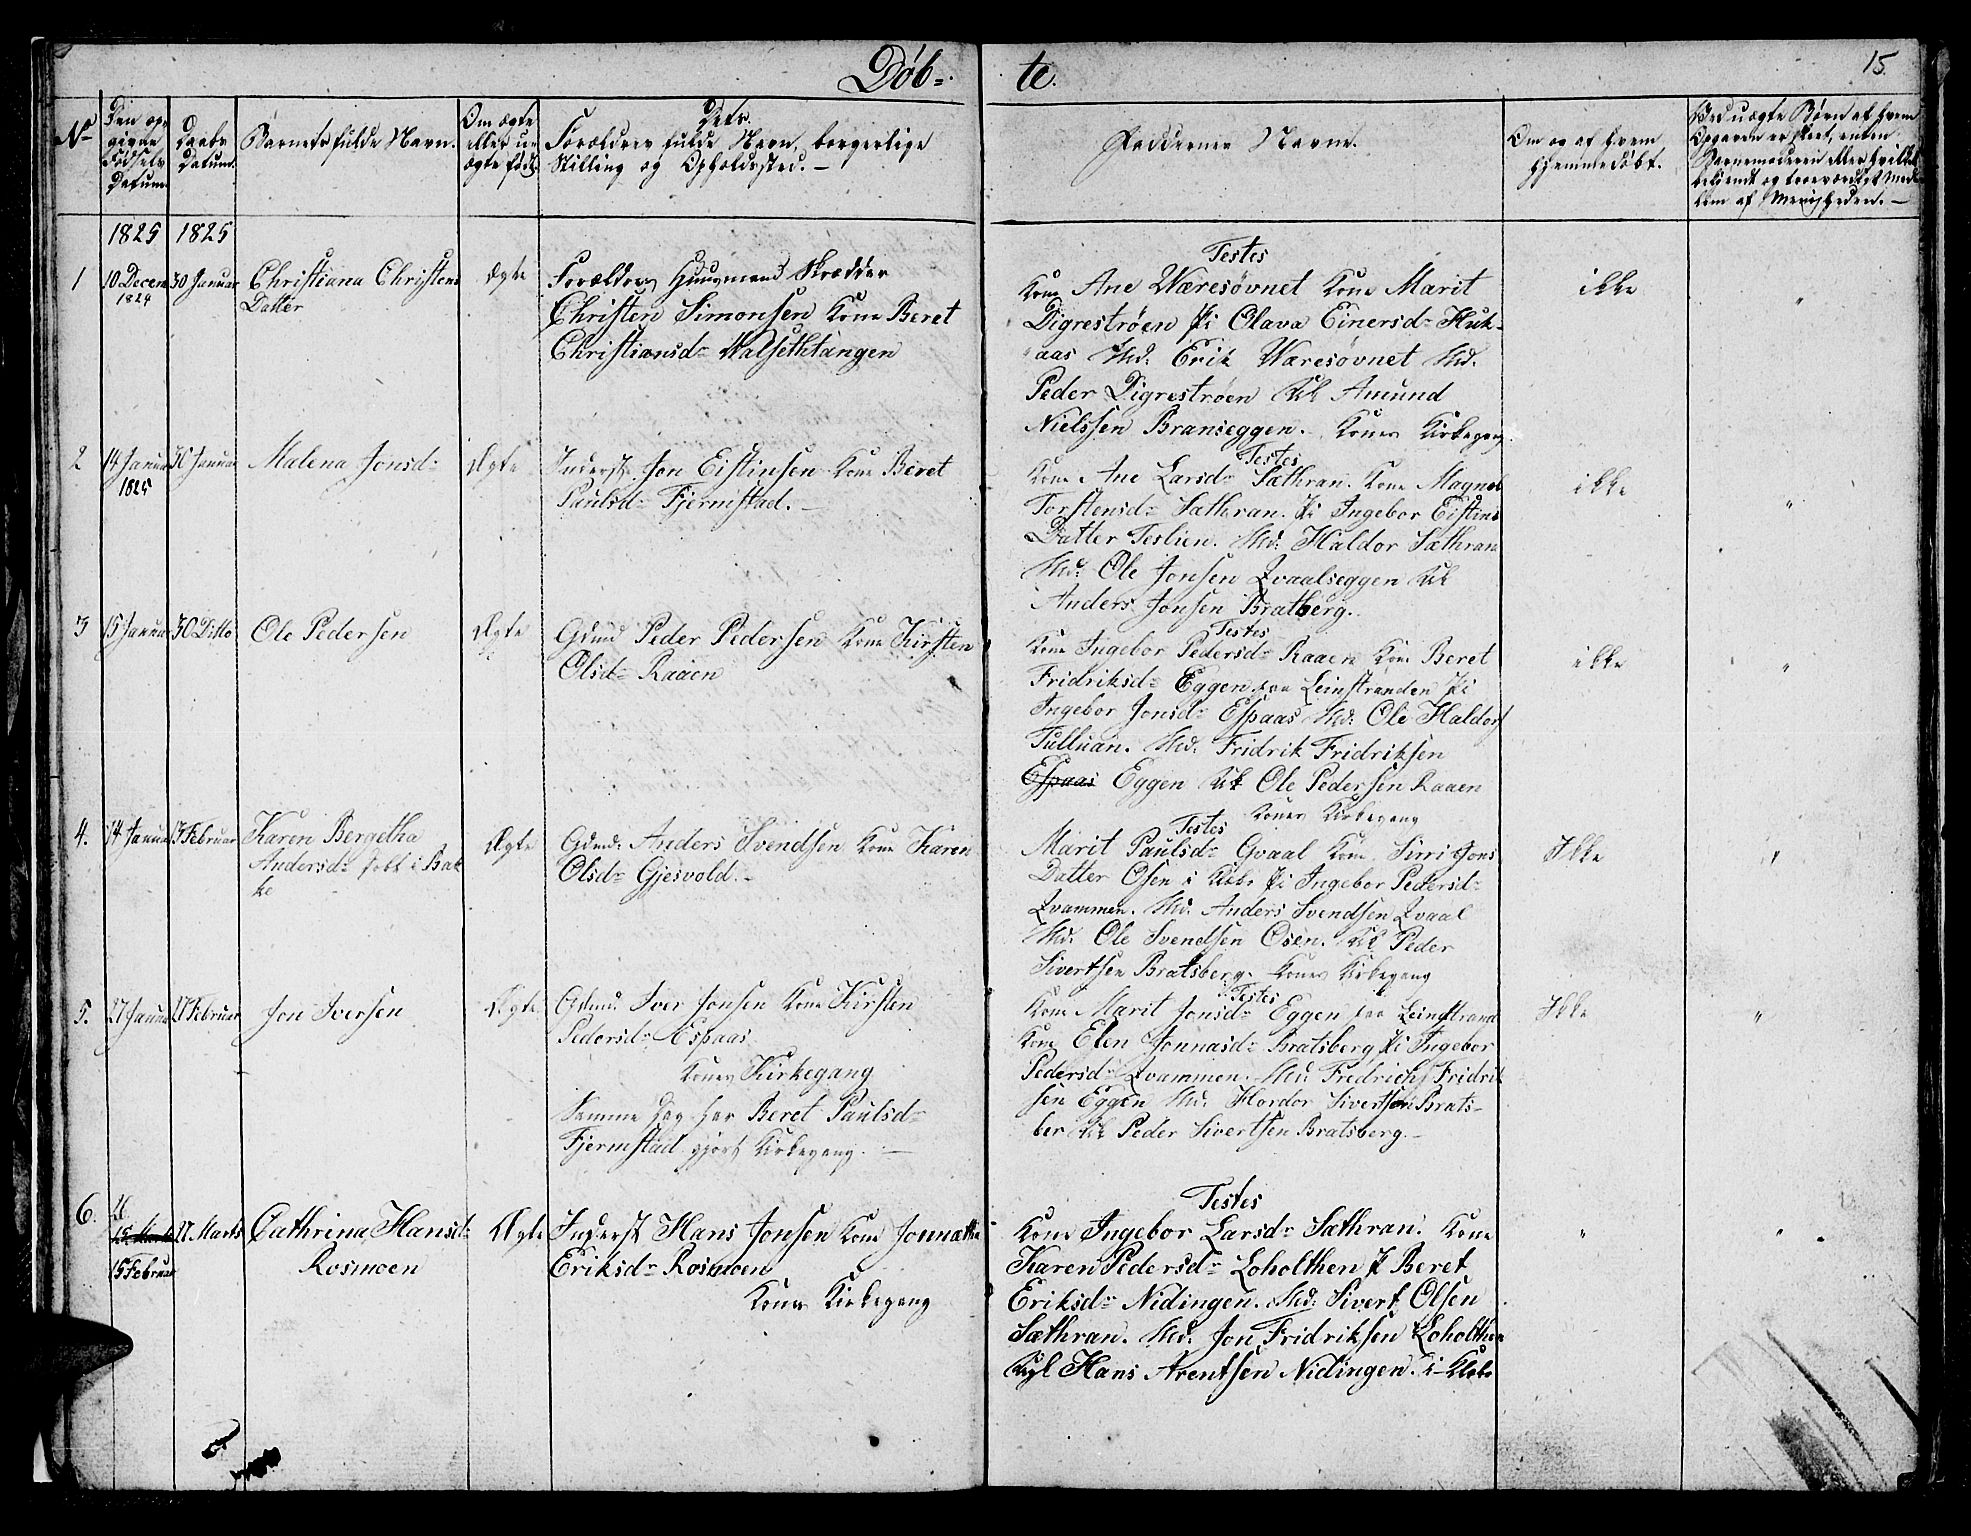 Døb=
te.
15
No
Den op-
givne
Fødsels
Datum
Daabs
Datum.
Barnets fulde Navn.
Om ægte
eller u-
ægte født.
Dets
Forældres fulde Navn, borgerlige
Stilling og Opholdssted. –
Faddernes Navne.
Om og af hvem
hjemmedøbt.
Ved uægte Børn af hvem
Opgaven er skeet, enten
Barnemoderen eller hvilket
bekjendt og troeværdigt Med-
lem af Menigheden. –
1825 1825
1
10 Decem
1824
30 Januar
Christiana Christens
Datter
Ægte
Forældres Huusmand Skrædder
Christen Simonsen Kone Beret
Christiansd= Valsethtangen
Testes
Kone Ane Wæresøvnet Kone Marit
Digrestrøen Pi Olava Einersd= Huk-
aas Md: Erik Waresøvnet Md:
Peder Digrestrøen Kk Amund
Nielssen Branseggen. Kones Kirkegang.
ikke
"
2
14 Januar
1825
30 Januar
Malena Jonsd=
Ægte
Inderst Jon Eistinsen Kone Beret
Paulsd= Fjermstad. –
Testes
Kone Ane Larsd= Sæthran. Kone Magnel
Torstensd= Sathran. Pi Ingebor Eistins
Datter Teslien. Md: Haldor Sæthran
Md: Ole Jonsen Qvaalseggen Kk
Anders Jonsen Bratberg.
ikke
"
3
15 Januar
30 Ditto
Ole Pedersen
Ægte
Gdmd Peder Pedersen Kone Kirsten
Olsd= Raaen
Testes
Kone Ingebor Pedersd= Raaen Kone Beret
Fridriksd= Eggen paa Leinstranden Pi
Ingebor Jonsd= Espaas Md: Ole Haldors
Tulluan. Md: Fridrik Fridriksen
Espaas Eggen Kk Ole Pedersen Raaen
Kones Kirkegang
ikke
"
4.
14 Januar
13 Februar
Karen Bergetha
Andersd= født i Bak
ke
Ægte
Gdmd: Anders Svendsen Kone Karen
Olsd= Gjesvold. –
Testes
Marit Paulsd= Qvaal Kone Sirri Jons
Datter Osen i Klebo Pi Ingebor Pedersd=
Qvammen. Md: Anders Svendsen Qvaal
Md: Ole Svendsen Osen. Kk Peder
Sivertsen Bratsberg. Kones Kirkegang
Ikke
"
5.
27 Januar
27 Februar
Jon Iversen
Ægte
Gdmd: Iver Jonsen Kone Kirsten
Pedersd= Espaas
Kones Kirkegang
Samme Dag har Beret Paulsd=
Fjermstad gjort Kirkegang. –
Testes
Kone Marit Jonsd= Eggen paa Leinstrand
Kone Elen Jonnasd= Bratsberg Pi Ingebor
Pedersd= Qvammen. Md: Fredrichs Fridrik
sen Eggen Md: Hordor Sivertsen Brats-
ber Kk Peder Sivertsen Bratsberg. –
Ikke
"
6.
15 Februar
27 Marts
Cathrina Hansd=
Rosmoen
Ægte
Inderst Hans Jonsen Kone Jonnetha
Eriksd= Rosmoen
Kones Kirkegang
Testes
Kone Ingebor Larsd= Sæthran. Kone
Karen Pedersd= Loholthen P Beret
Eriksd= Nidingen. Md: Sivert Olsen
Sæthran. Md: Jon Fridriksen Loholthen
Ugk Hans Arentsen Nidingen. i Klebo
"
"